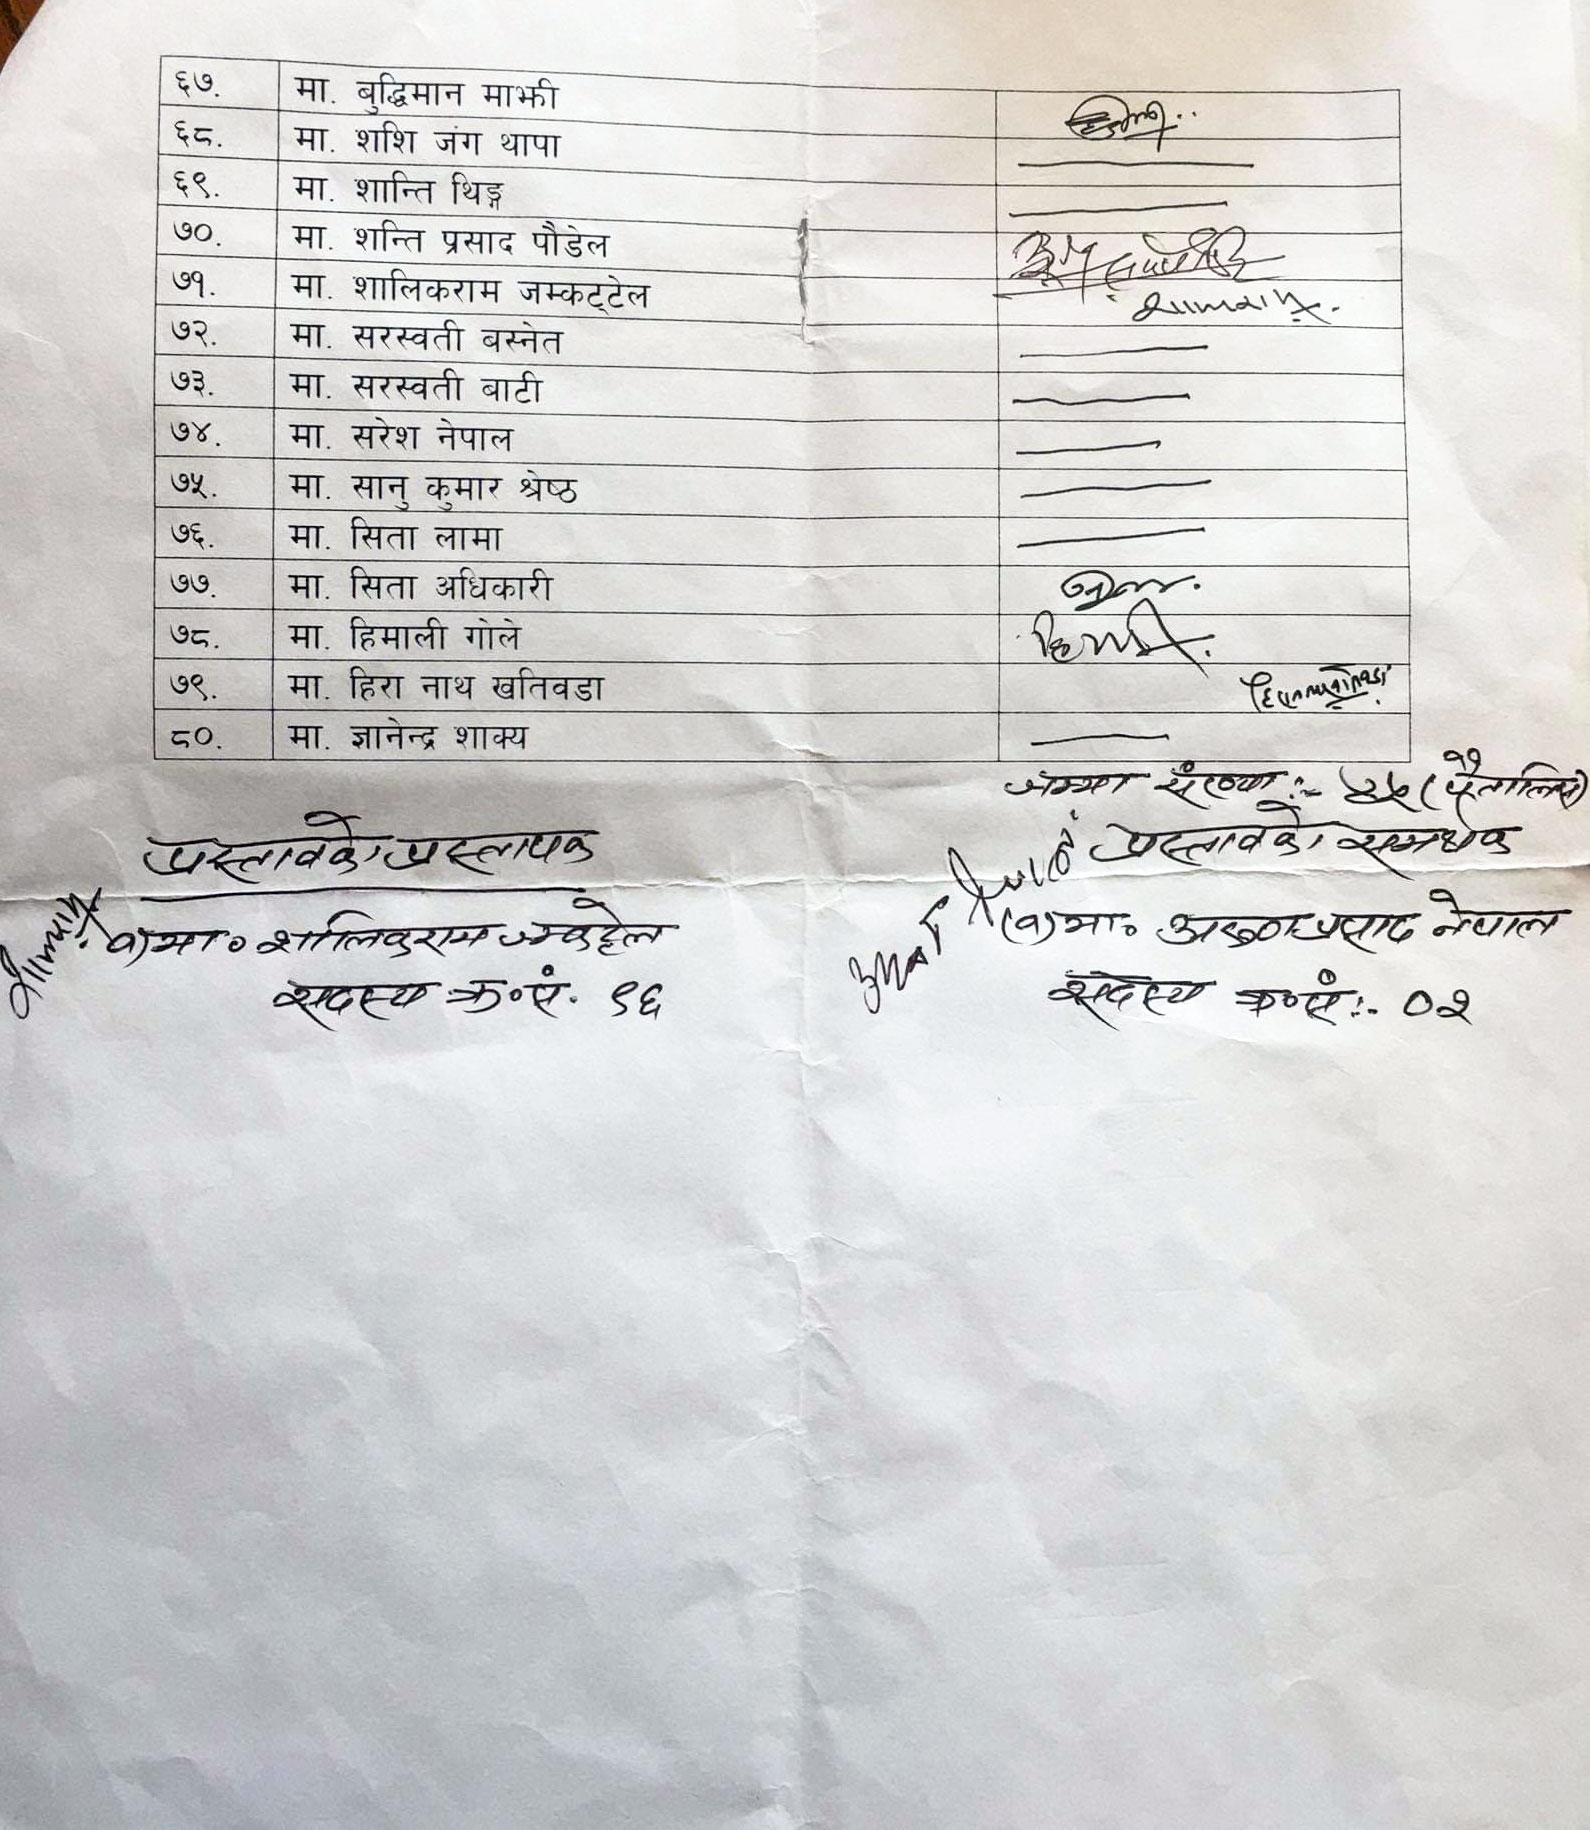 ६७. मा. बुद्धिमान माझी
६८. मा. शशि जंग थापा
६९. मा. शान्ति थिङ्ग
७०. मा. शन्ति प्रसाद पौडेल
७१. मा. शालिकराम जम्कट्टेल
७२. मा. सरस्वती बस्नेत
७३. मा. सरस्वती बाटी
७४. मा. सरेश नेपाल
७५. मा. सानु कुमार श्रेष्ठ
७६. मा. सिता लामा
७७. मा. सिता अधिकारी
७८. मा. हिमाली गोले
७९. मा. हिरा नाथ खतिवडा
८०. मा. ज्ञानेन्द्र शाक्य
जम्मा संख्या :- ४५ (पैतालिस)
प्रस्तावको प्रस्तापक
प्रस्तावको समर्थक
मा० शालिकराम जम्कट्टेल
मा० अरुण प्रसाद नेपाल
सदस्य क्र०सं. ९६
सदस्य क्र०सं :- ०२